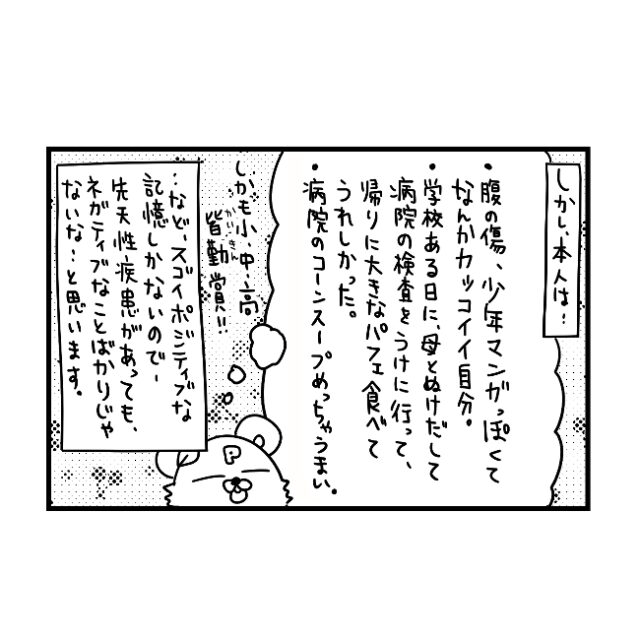 しかし、本人は…
・腹の傷、少年マンガっぽくて
なんかカッコイイ自分。
・学校ある日に、母とぬけだして
病院の検査をうけに行って、
帰りに大きなパフェ食べて
うれしかった。
・病院のコーンスープめっちゃうまい。
しかも小、中、高
かいきん
皆勤賞!!
…など、スゴイポジティブな
記憶しかないので、
先天性疾患があっても、
ネガティブなことばかりじゃ
ないな…と思います。
P